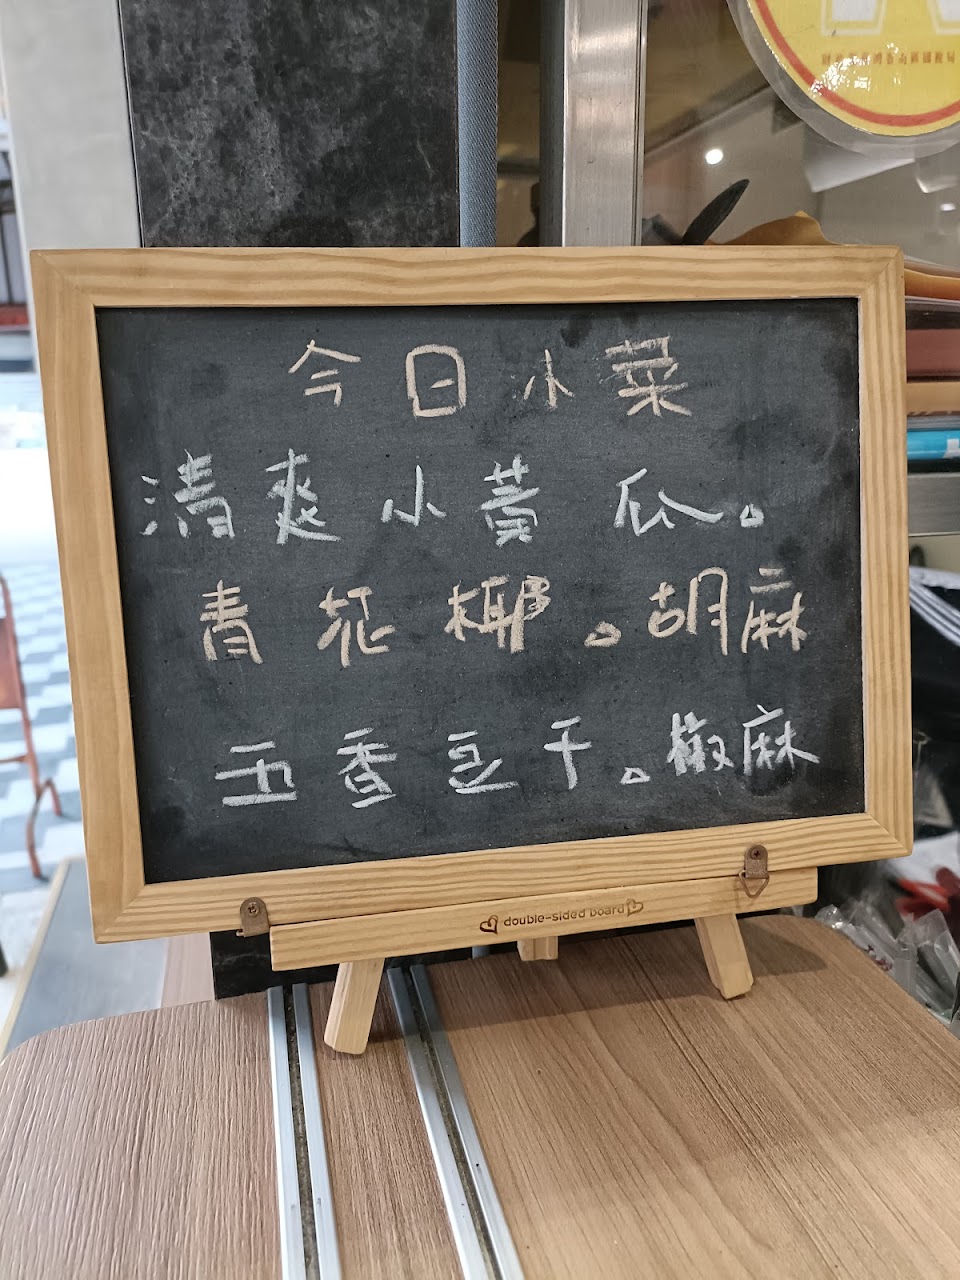 今日小菜
清爽小黃瓜。
青花椰。胡麻
五香豆干。椒麻
double-sided board